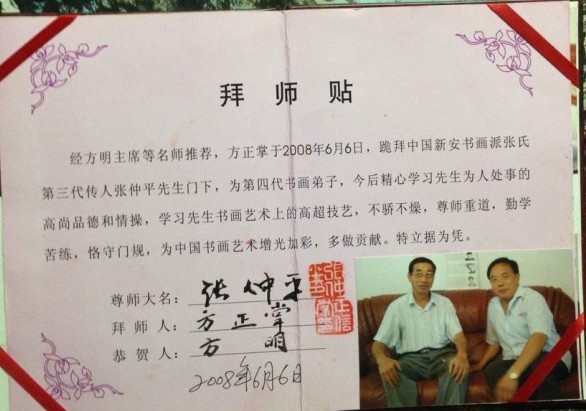 拜师贴
经方明主席等名师推荐，方正掌于2008年6月6日，跪拜中国新安书画派张氏
第三代传人张仲平先生门下，为第四代书画弟子，今后精心学习先生为人处事的
高尚品德和情操，学习先生书画艺术上的高超技艺，不骄不燥，尊师重道，勤学
苦练，恪守门规，为中国书画艺术增光加彩，多做贡献。特立据为凭。
尊师大名：张仲平
拜师人：方正掌
恭贺人：方明
2008年6月6日